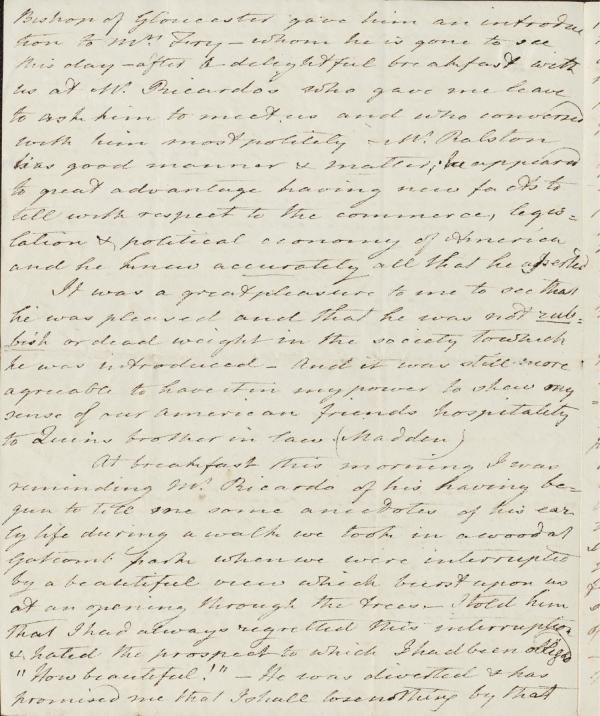 Bishop of Gloucester gave him an introduc
tion to Mrs Fry – whom he is gone to see
this day – after a delightful breakfast with
us at Mr. Ricardos who gave me leave
to ask him to meet us and who conversed
with him most politely – Mr. Ralston
has good manner & matter; he appeared
to great advantage having new facts to
tell with respect to the commerce, legis=
lation & political economy of America
and he knew accurately all that he asserted
It was a great pleasure to me to see that
he was pleased and that he was not rub=
bish or dead weight in the society to which
he was introduced – And it was still more
agreeable to have it in my power to shew my
sense of our American friends hospitality
to Quins brother in law (Madden)
At breakfast this morning I was
reminding Mr. Ricardo of his having be=
gun to tell me some anecdotes of his ear
ly life during a walk we took in a wood at
Gatcomb park when we were interrupted
by a beautiful view which burst upon us
at an opening through the trees – I told him
that I had always regretted this interruption
& hated the prospect to which I had been obliged
"How beautiful!" – He was diverted & has
promised me that I shall lose nothing by that